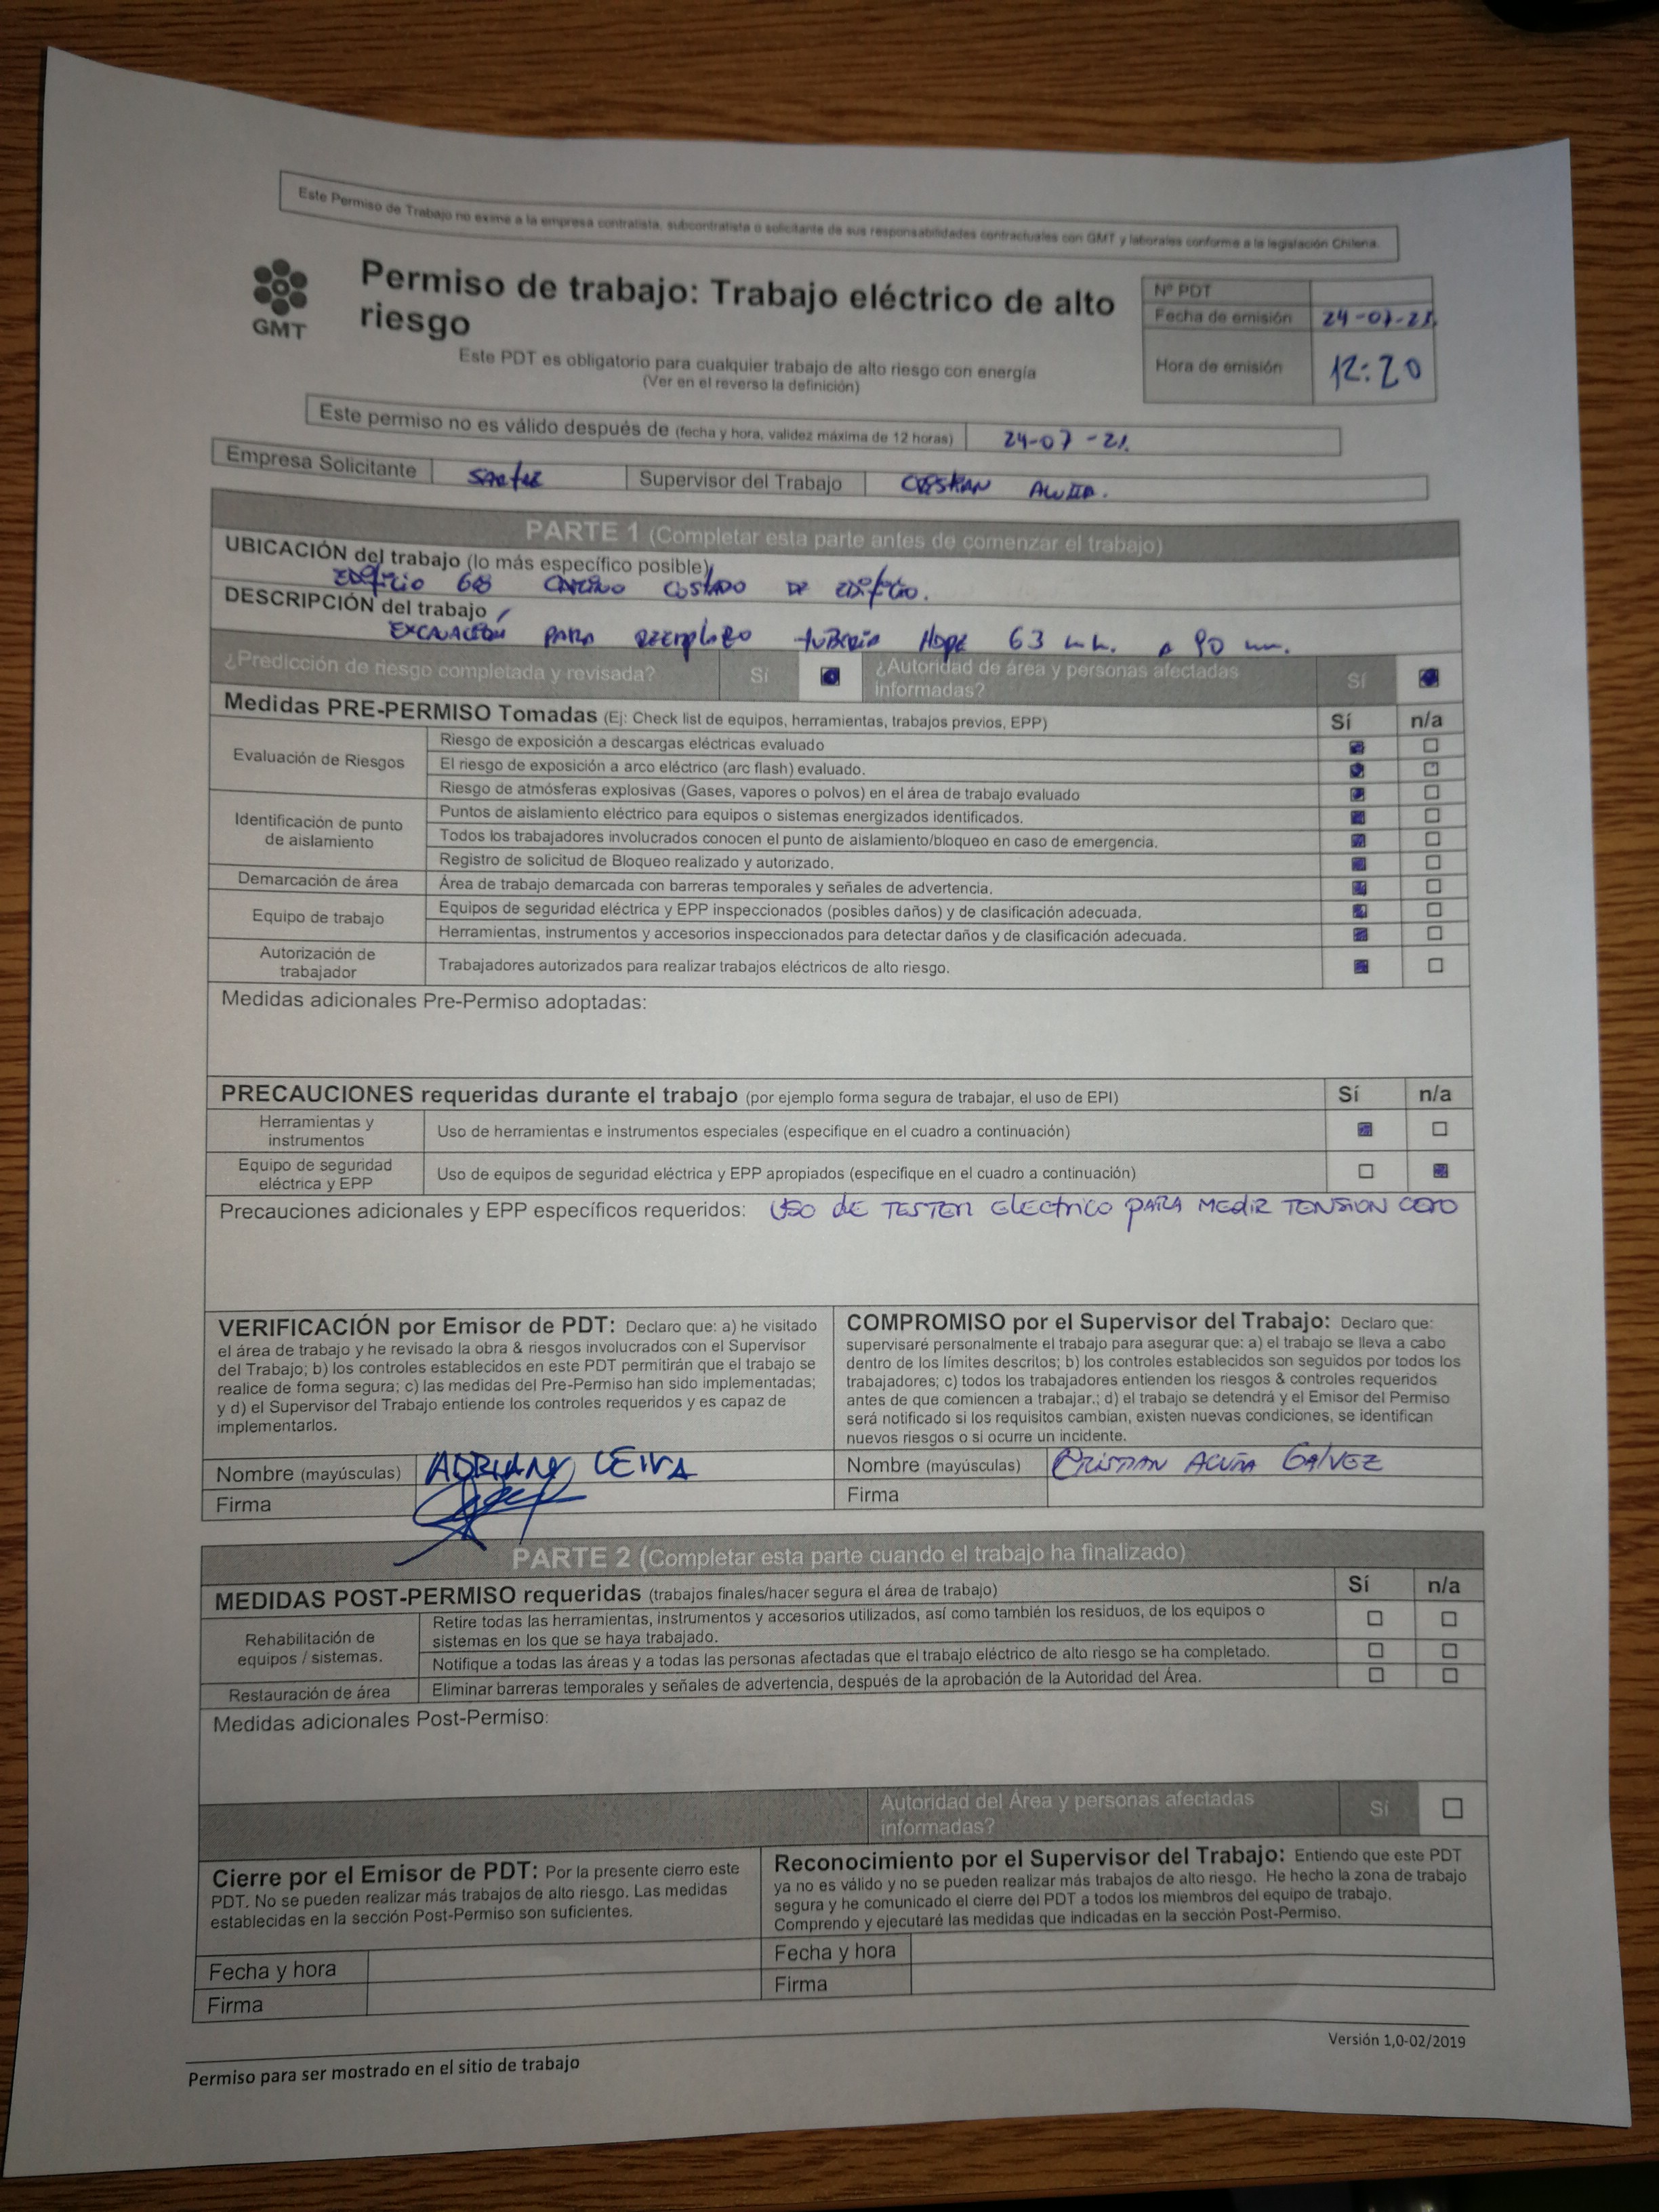 Este Permiso de Trabajo no exime a la empresa contratista, subcontratista o solicitante de sus responsabilidades contractuales con GMT y laborales conforme a la legislación Chilena.
GMT
Permiso de trabajo: Trabajo eléctrico de alto riesgo
Este PDT es obligatorio para cualquier trabajo de alto riesgo con energía
(Ver en el reverso la definición)
Nº PDT
Fecha de emisión 24-07-21.
Hora de emisión 12:20
Este permiso no es válido después de (fecha y hora, validez máxima de 12 horas) 24-07-21.
Empresa Solicitante Supervisor del Trabajo
PARTE 1 (Completar esta parte antes de comenzar el trabajo)
UBICACIÓN del trabajo (lo más específico posible)
Edificio 68 Casino costado de edificio.
DESCRIPCIÓN del trabajo
Excavación para reemplazo tubería HDPE 63 mm. a 90 mm.
¿Predicción de riesgo completada y revisada? Sí
¿Autoridad de área y personas afectadas informadas? Sí
Medidas PRE-PERMISO Tomadas (Ej: Check list de equipos, herramientas, trabajos previos, EPP) Sí n/a
Evaluación de Riesgos
Riesgo de exposición a descargas eléctricas evaluado
El riesgo de exposición a arco eléctrico (arc flash) evaluado.
Riesgo de atmósferas explosivas (Gases, vapores o polvos) en el área de trabajo evaluado
Identificación de punto de aislamiento
Puntos de aislamiento eléctrico para equipos o sistemas energizados identificados.
Todos los trabajadores involucrados conocen el punto de aislamiento/bloqueo en caso de emergencia.
Registro de solicitud de Bloqueo realizado y autorizado.
Demarcación de área Área de trabajo demarcada con barreras temporales y señales de advertencia.
Equipo de trabajo
Equipos de seguridad eléctrica y EPP inspeccionados (posibles daños) y de clasificación adecuada.
Herramientas, instrumentos y accesorios inspeccionados para detectar daños y de clasificación adecuada.
Autorización de trabajador Trabajadores autorizados para realizar trabajos eléctricos de alto riesgo.
Medidas adicionales Pre-Permiso adoptadas:
PRECAUCIONES requeridas durante el trabajo (por ejemplo forma segura de trabajar, el uso de EPI) Sí n/a
Herramientas y instrumentos Uso de herramientas e instrumentos especiales (especifique en el cuadro a continuación)
Equipo de seguridad eléctrica y EPP Uso de equipos de seguridad eléctrica y EPP apropiados (especifique en el cuadro a continuación)
Precauciones adicionales y EPP específicos requeridos: USO de TESTER Electrico PARA MEDIR TENSION CERO
VERIFICACIÓN por Emisor de PDT: Declaro que: a) he visitado
el área de trabajo y he revisado la obra & riesgos involucrados con el Supervisor
del Trabajo; b) los controles establecidos en este PDT permitirán que el trabajo se
realice de forma segura; c) las medidas del Pre-Permiso han sido implementadas;
y d) el Supervisor del Trabajo entiende los controles requeridos y es capaz de
implementarlos.
Nombre (mayúsculas) ADRIANO LEIVA
Firma
COMPROMISO por el Supervisor del Trabajo: Declaro que:
supervisaré personalmente el trabajo para asegurar que: a) el trabajo se lleva a cabo
dentro de los límites descritos; b) los controles establecidos son seguidos por todos los
trabajadores; c) todos los trabajadores entienden los riesgos & controles requeridos
antes de que comiencen a trabajar.; d) el trabajo se detendrá y el Emisor del Permiso
será notificado si los requisitos cambian, existen nuevas condiciones, se identifican
nuevos riesgos o si ocurre un incidente.
Nombre (mayúsculas) CRISTIAN ACUÑA GALVEZ
Firma
PARTE 2 (Completar esta parte cuando el trabajo ha finalizado)
MEDIDAS POST-PERMISO requeridas (trabajos finales/hacer segura el área de trabajo) Sí n/a
Rehabilitación de equipos / sistemas.
Retire todas las herramientas, instrumentos y accesorios utilizados, así como también los residuos, de los equipos o
sistemas en los que se haya trabajado.
Notifique a todas las áreas y a todas las personas afectadas que el trabajo eléctrico de alto riesgo se ha completado.
Restauración de área Eliminar barreras temporales y señales de advertencia, después de la aprobación de la Autoridad del Área.
Medidas adicionales Post-Permiso:
Autoridad del Área y personas afectadas informadas? Sí
Cierre por el Emisor de PDT: Por la presente cierro este
PDT. No se pueden realizar más trabajos de alto riesgo. Las medidas
establecidas en la sección Post-Permiso son suficientes.
Fecha y hora
Firma
Reconocimiento por el Supervisor del Trabajo: Entiendo que este PDT
ya no es válido y no se pueden realizar más trabajos de alto riesgo. He hecho la zona de trabajo
segura y he comunicado el cierre del PDT a todos los miembros del equipo de trabajo.
Comprendo y ejecutaré las medidas que indicadas en la sección Post-Permiso.
Fecha y hora
Firma
Versión 1,0-02/2019
Permiso para ser mostrado en el sitio de trabajo